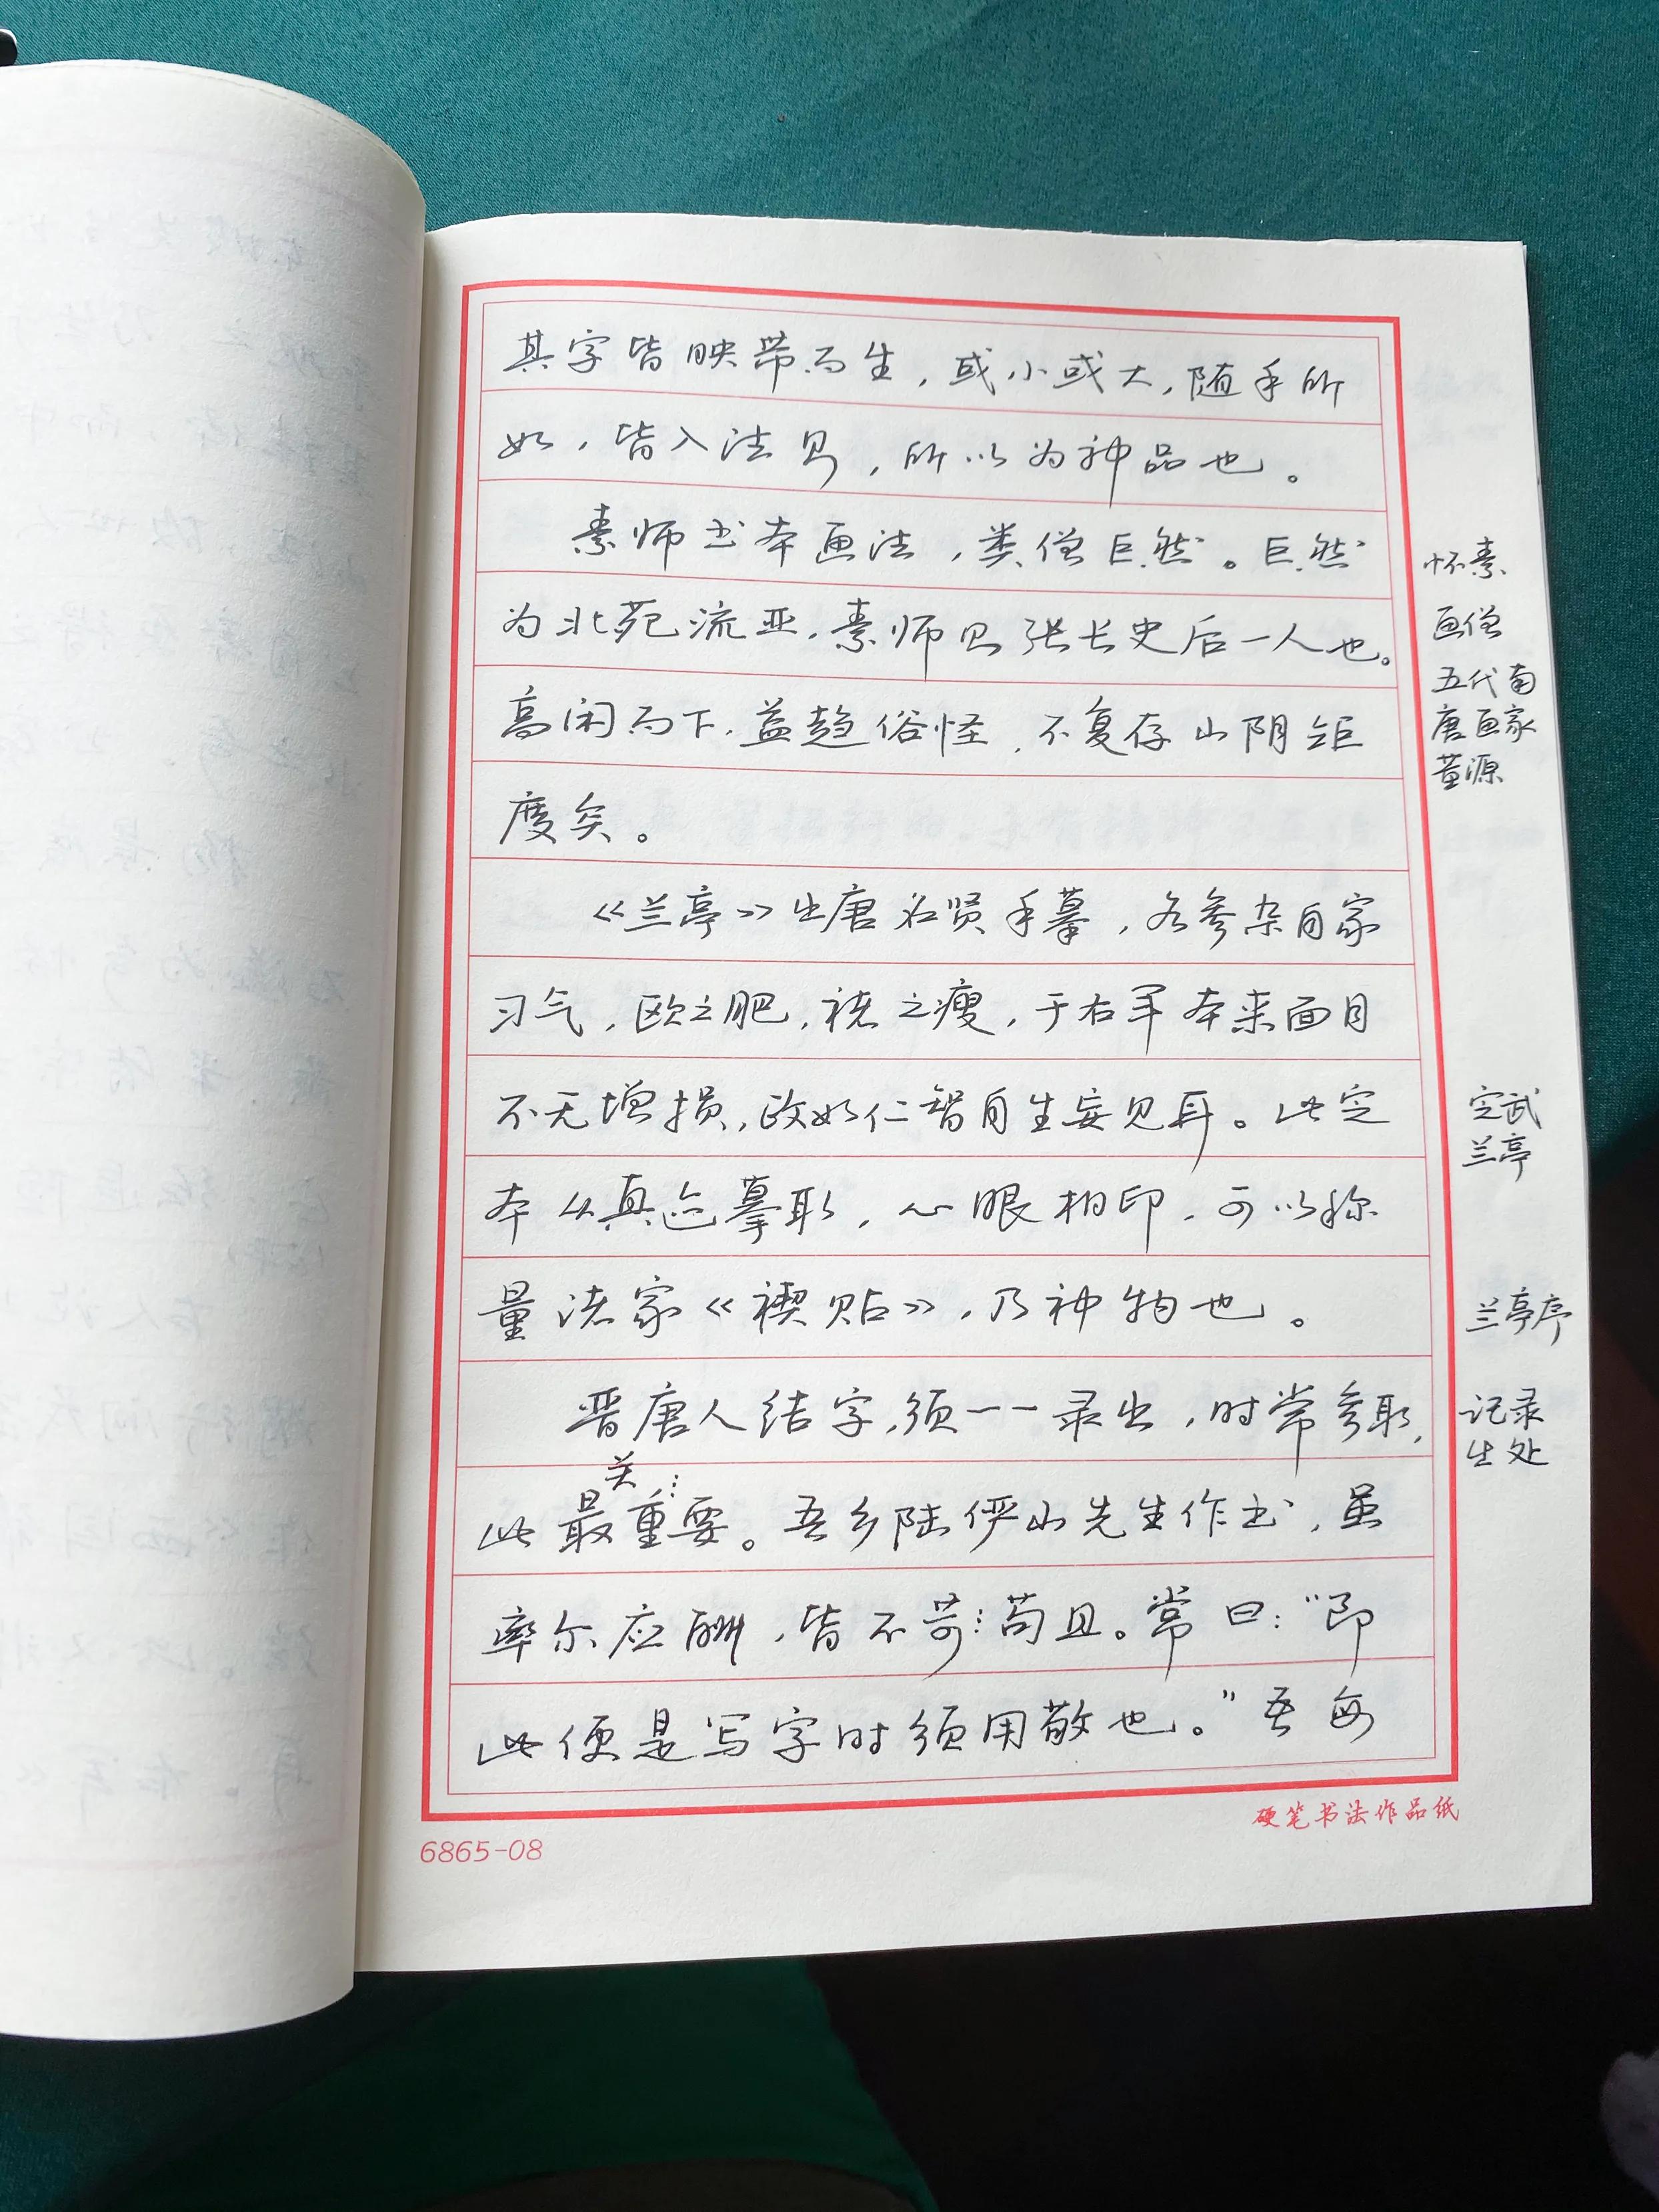 其字皆映带而生，或小或大，随手所
如，皆入法则，所以为神品也。
素师书本画法，类僧巨然。巨然
怀素
画僧
为北苑流亚，素师则张长史后一人也。
五代南
唐画家
董源
高闲而下，益趋俗怪，不复存山阴矩
度矣。
《兰亭》出唐名贤手摹，各参杂自家
习气，欧之肥，褚之瘦，于右军本来面目
不无增损，政如仁智自生妄见耳。此定
定武
兰亭
本从真迹摹取，心眼相印，可以称
量诸家《禊贴》，乃神物也。
兰亭序
晋唐人结字，须一一录出，时常参取，
记录
出处
关
此最重要。吾乡陆俨山先生作书，虽
率尔应酬，皆不苛苟且。常曰：“即
此便是写字时须用敬也。”吾每
硬笔书法作品纸
6865-08